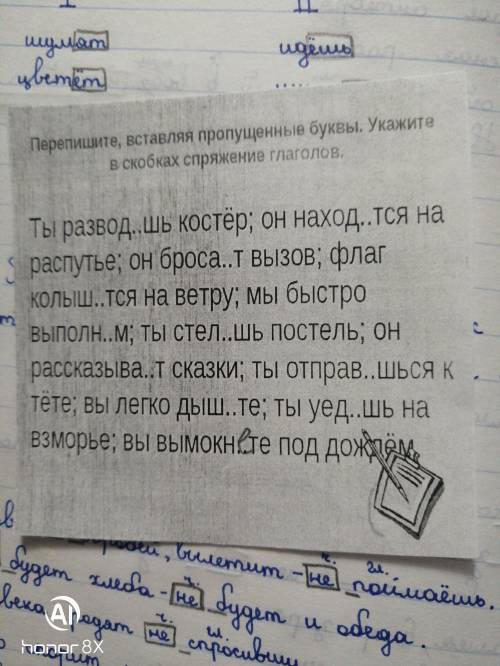 I II
шумят идёшь
цветёт .....
Перепишите, вставляя пропущенные буквы. Укажите
в скобках спряжение глаголов.
Ты развод..шь костёр; он наход..тся на
распутье; он броса..т вызов; флаг
колыш..тся на ветру; мы быстро
выполн..м; ты стел..шь постель; он
рассказыва..т сказки; ты отправ..шься к
тёте; вы легко дыш..те; ты уед..шь на
взморье; вы вымокн..те под дождём
вылетит - не поймаешь.
будет хлеба - не будет и обеда.
века не спросивши
AI
honor 8X